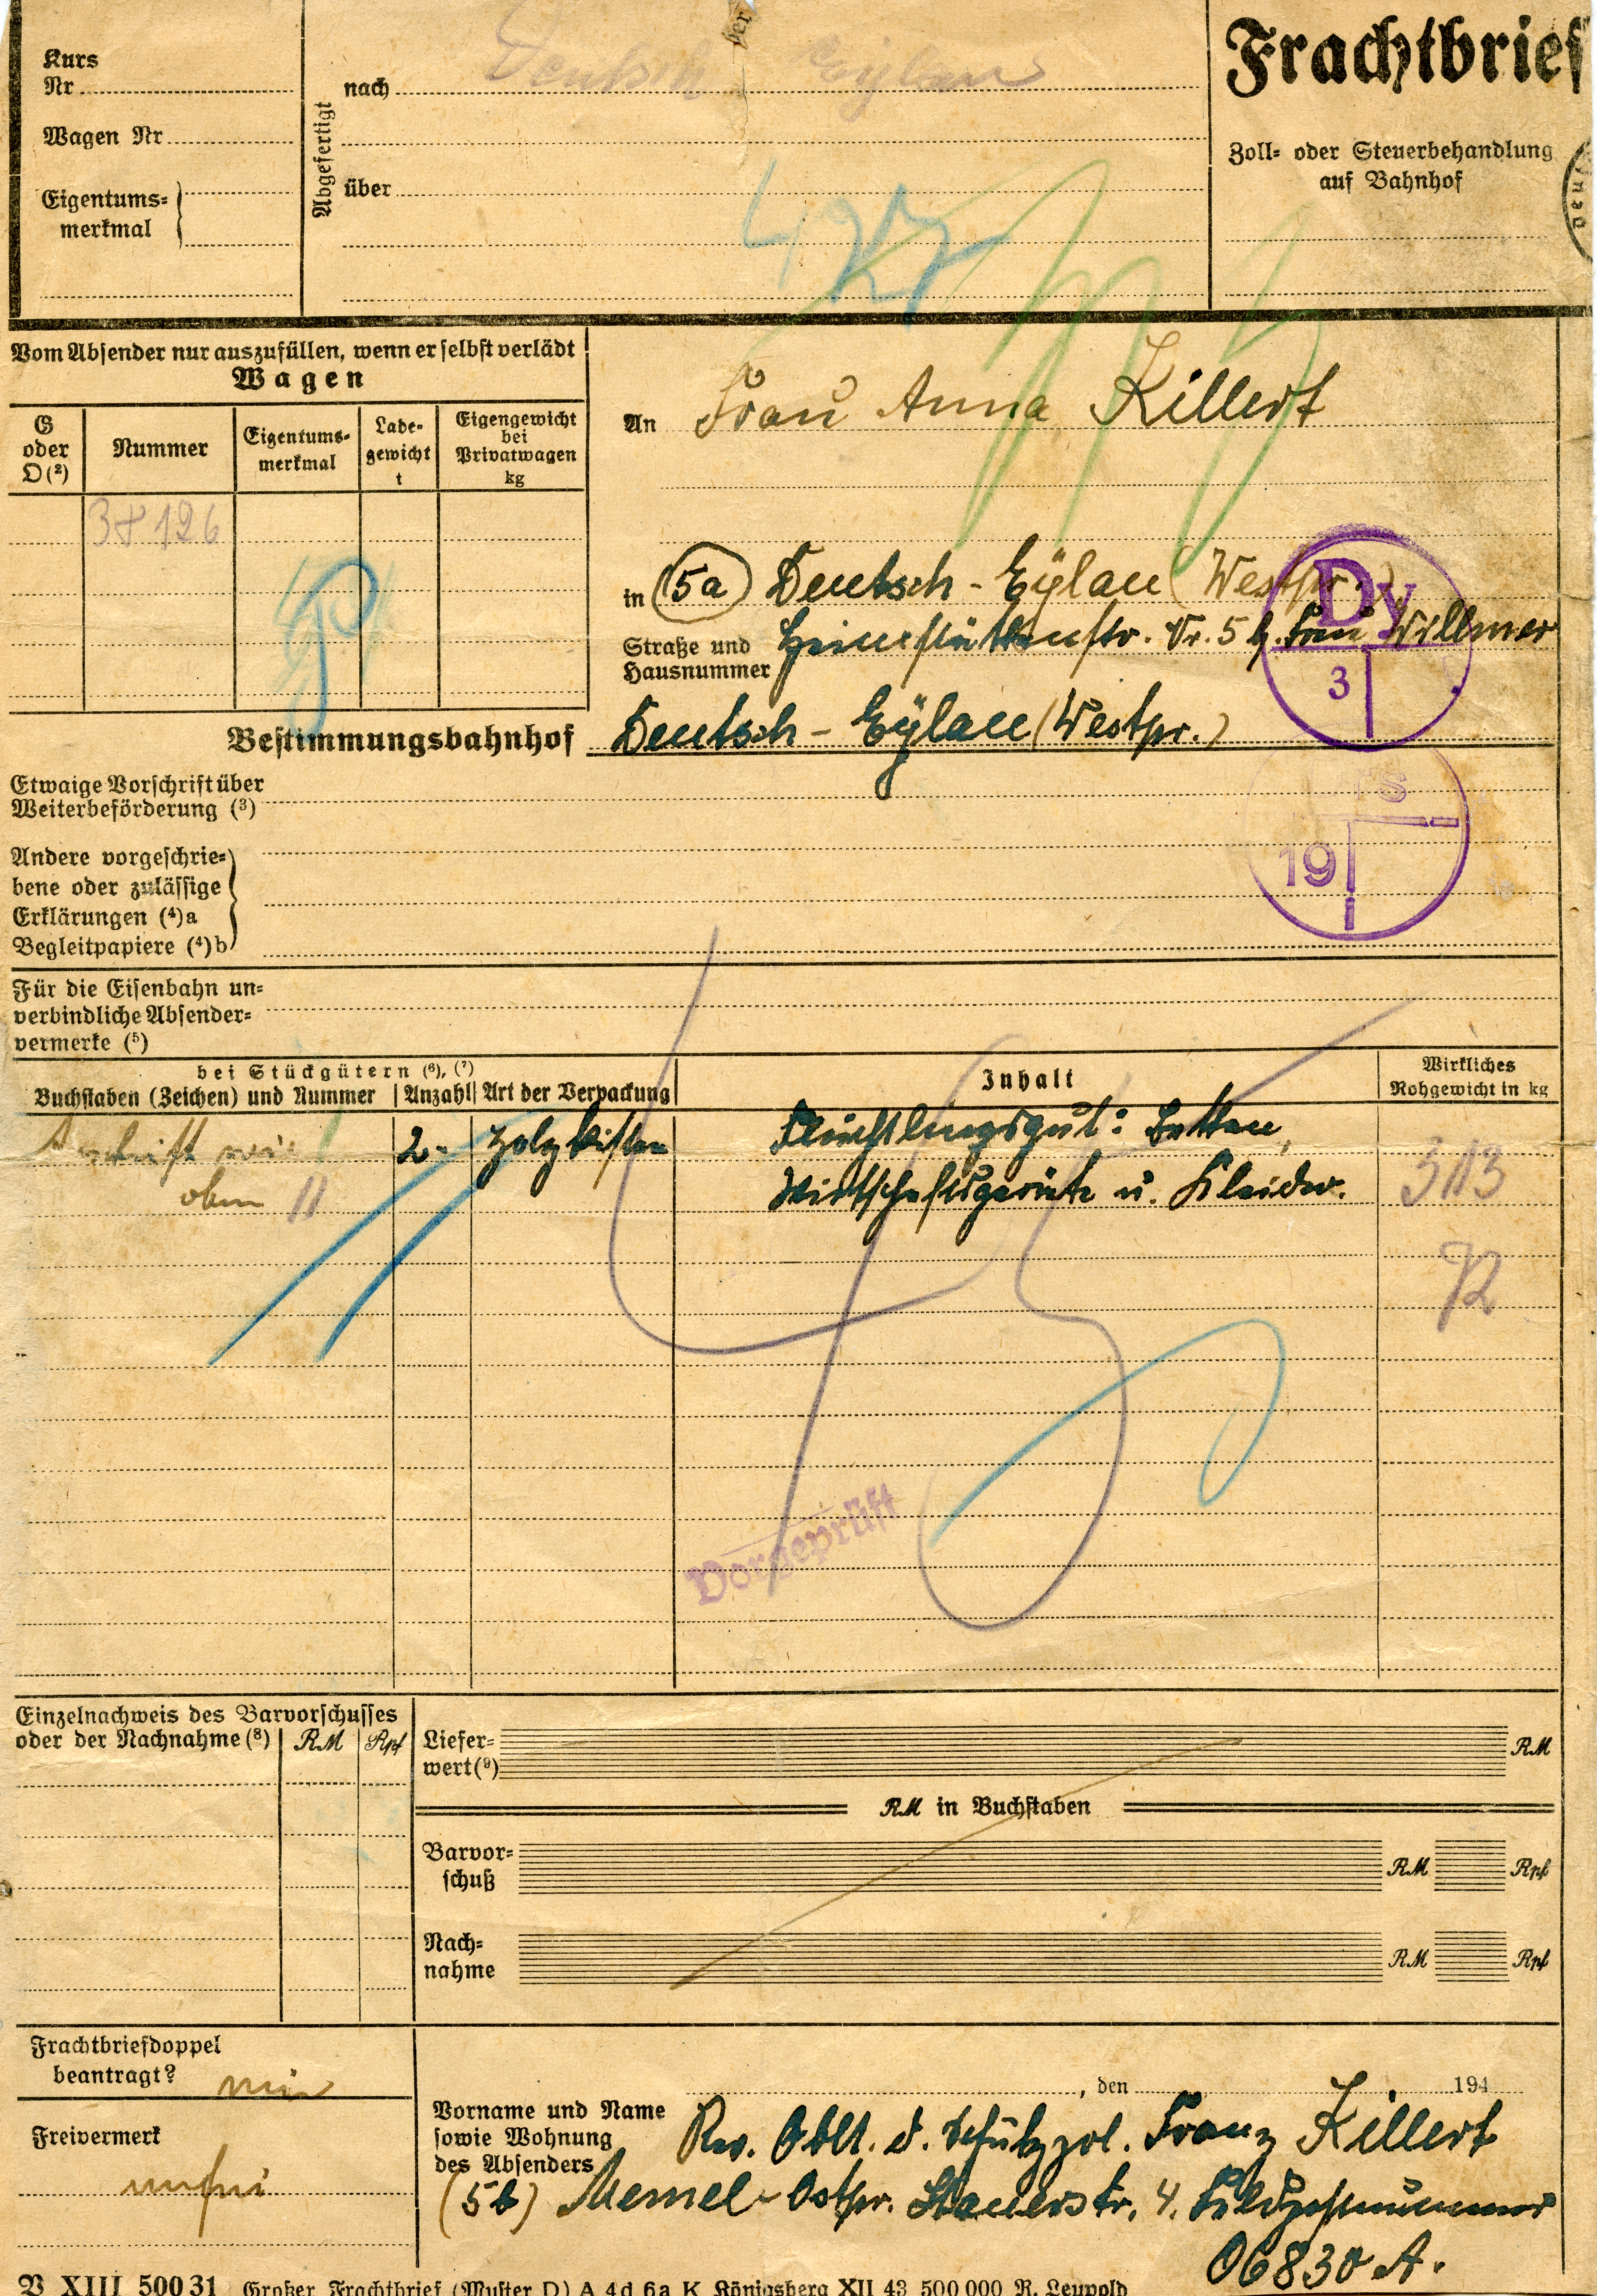 Frachtbrief
Kurs
Nr
Wagen Nr
Eigentums-
merkmal
Abgefertigt
nach Deutsch Eylau
über
Zoll- oder Steuerbehandlung
auf Bahnhof
Vom Absender nur auszufüllen, wenn er selbst verlädt
Wagen
G oder O (²)
Nummer
Eigentums-
merkmal
Lade-
gewicht
t
Eigengewicht
bei
Privatwagen
kg
An Frau Anna Killert
in (5a) Deutsch-Eylau (Westpr.)
Straße und
Hausnummer
Heimstättenstr. Nr. 5 b. Frau Willmer
Dy
3
Bestimmungsbahnhof Deutsch-Eylau (Westpr.)
19
Etwaige Vorschrift über
Weiterbeförderung (³)
Andere vorgeschrie-
bene oder zulässige
Erklärungen (⁴)a
Begleitpapiere (⁴)b
Für die Eisenbahn un-
verbindliche Absender-
vermerke (⁵)
bei Stückgütern (⁶), (⁷)
Buchstaben (Zeichen) und Nummer
Anzahl
Art der Verpackung
Inhalt
Wirkliches
Rohgewicht in kg
Anschrift wie 2 Holzkisten Flüchtlingsgut: Betten,
oben Wirtschaftsgeräte u. Kleider.
72
Vorgeprüft
Einzelnachweis des Barvorschusses
oder der Nachnahme (⁸) RM Rpf
Liefer-
wert (⁹) RM
RM in Buchstaben
Barvor-
schuß RM Rpf
Nach-
nahme RM Rpf
Frachtbriefdoppel
beantragt? nein
Freivermerk
unfrei
, den 194
Vorname und Name
sowie Wohnung
des Absenders
Rev. Oblt. d. Schutzpol. Franz Killert
(5b) Memel-Ostpr. Steuerstr. 4. Feldpostnummer
06830 A.
V XIII 500 31 Großer Frachtbrief (Muster D) A 4 d 6a K Königsberg XII 43 500 000 R. Leupold